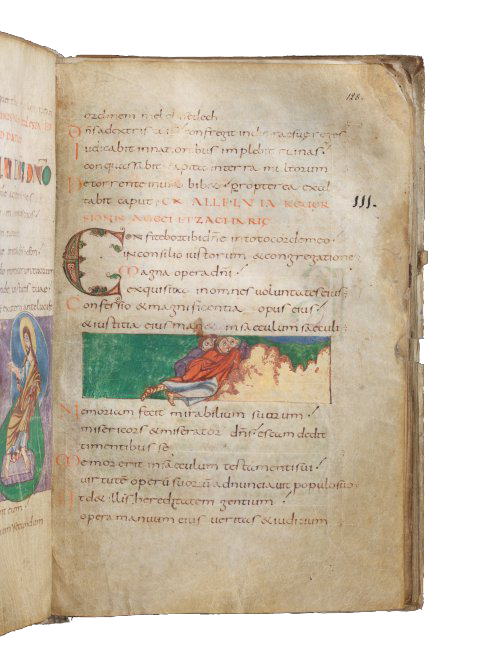 128.
ordinem melchisedech
Dns adextris tuis confregit indie irae suae reges
Iudicabit innationibus implebit ruinas
conquassabit capita interra multorum
De torrente inuia bibet propterea exal
tabit caput CX ALLELVIA REUER
SIONIS AGGEI ET ZACHARIE
111.
Confitebor tibi dne intoto corde meo
inconsilio iustorum & congregatione
Magna opera dni
exquisita inomnes uoluntates eius
Confessio & magnificentia opus eius
& iustitia eius manet insaeculum saeculi
Memoriam fecit mirabilium suorum
misericors & miserator dns escam dedit
timentibus se
Memor erit insaeculum testamenti sui
uirtutem operum suorum adnuntiauit populo suo
Ut det illis hereditatem gentium
opera manuum eius ueritas & iudicium